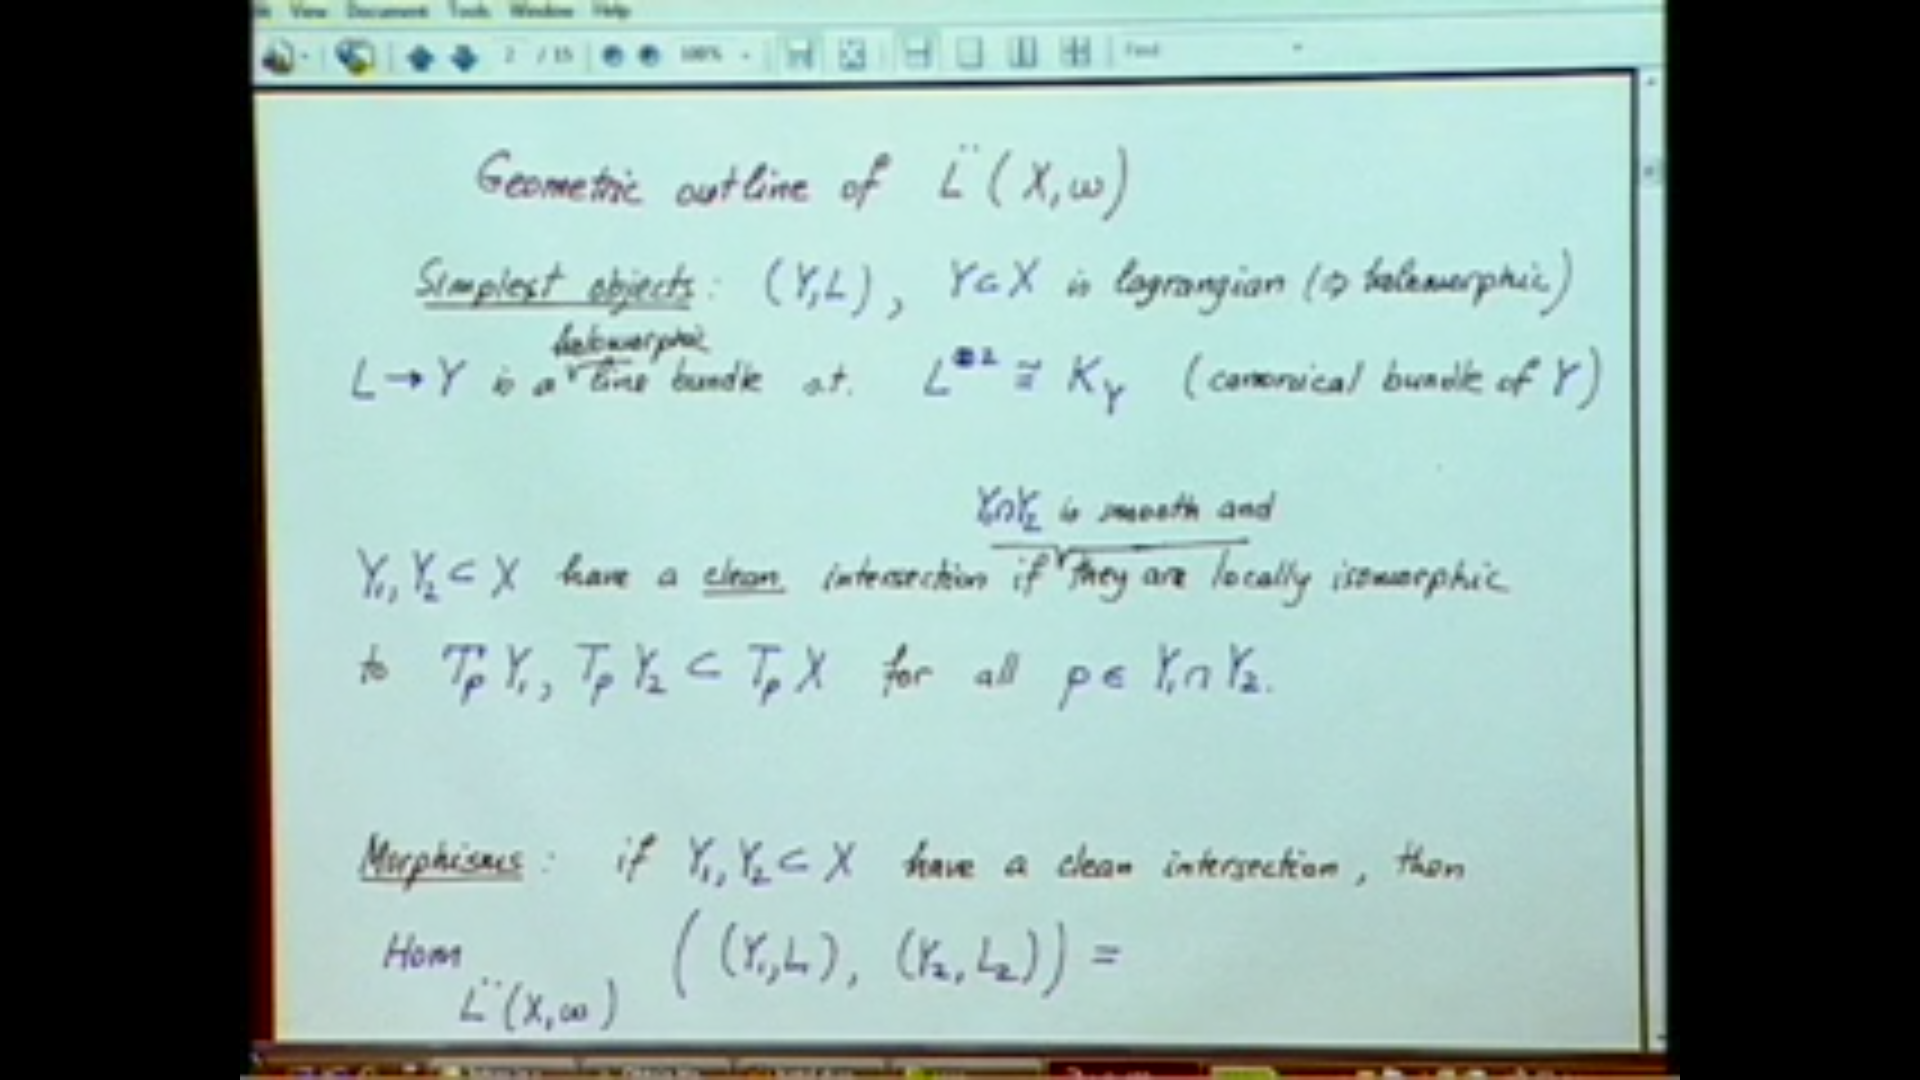 View Document Tools Window Help
2 / 15 100% Find
Geometric outline of L̈ (X, ω)
Simplest objects: (Y, L), Y ⊂ X is lagrangian (⇒ holomorphic)
holomorphic
L → Y is a line bundle s.t. L^⊗2 ≅ K_Y (canonical bundle of Y)
Y₁∩Y₂ is smooth and
Y₁, Y₂ ⊂ X have a clean intersection if they are locally isomorphic
to T_p Y₁, T_p Y₂ ⊂ T_p X for all p ∈ Y₁ ∩ Y₂.
Morphisms: if Y₁, Y₂ ⊂ X have a clean intersection, then
Hom_L̈(X, ω) ((Y₁, L₁), (Y₂, L₂)) =